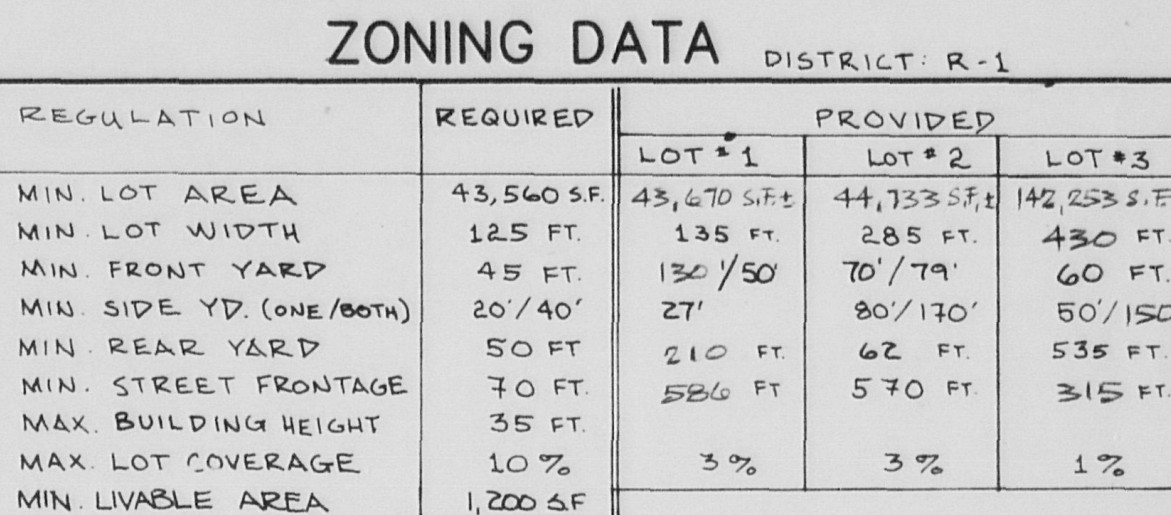 ZONING DATA DISTRICT: R-1
REGULATION REQUIRED PROVIDED
LOT #1 LOT #2 LOT #3
MIN. LOT AREA 43,560 S.F. 43,670 S.F.± 44,733 S.F.± 142,253 S.F.
MIN. LOT WIDTH 125 FT. 135 FT. 285 FT. 430 FT.
MIN. FRONT YARD 45 FT. 130'/50' 70'/79' 60 FT.
MIN. SIDE YD. (ONE/BOTH) 20'/40' 27' 80'/170' 50'/150
MIN. REAR YARD 50 FT 210 FT. 62 FT. 535 FT.
MIN. STREET FRONTAGE 70 FT. 586 FT 570 FT. 315 FT.
MAX. BUILDING HEIGHT 35 FT.
MAX. LOT COVERAGE 10% 3% 3% 1%
MIN. LIVABLE AREA 1,200 S.F